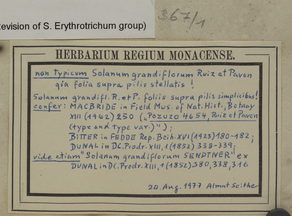 Revision of S. Erythrotrichum group)
367/1
HERBARIUM REGIUM MONACENSE.
non typicum Solanum grandiflorum Ruiz et Pavon
quia folia supra pilis stellatis !
Solanum grandifl. R. et P. foliis supra pilis simplicibus!
confer: MACBRIDE in Field Mus. of Nat. Hist., Botany
XIII (1962) 250 („Pozuzo 4654, Ruiz et Pavon
(type and type var.)");
BITTER in FEDDE Rep. Beih. XVI (1923) 180-182;
DUNAL in DC. Prodr. XIII,1 (1852) 338-339;
vide etiam "Solanum grandiflorum SENDTNER" ex
DUNAL in DC. Prodr. XIII,1 (1852) 380, 338, 316
20. Aug. 1977 Almut Seithe